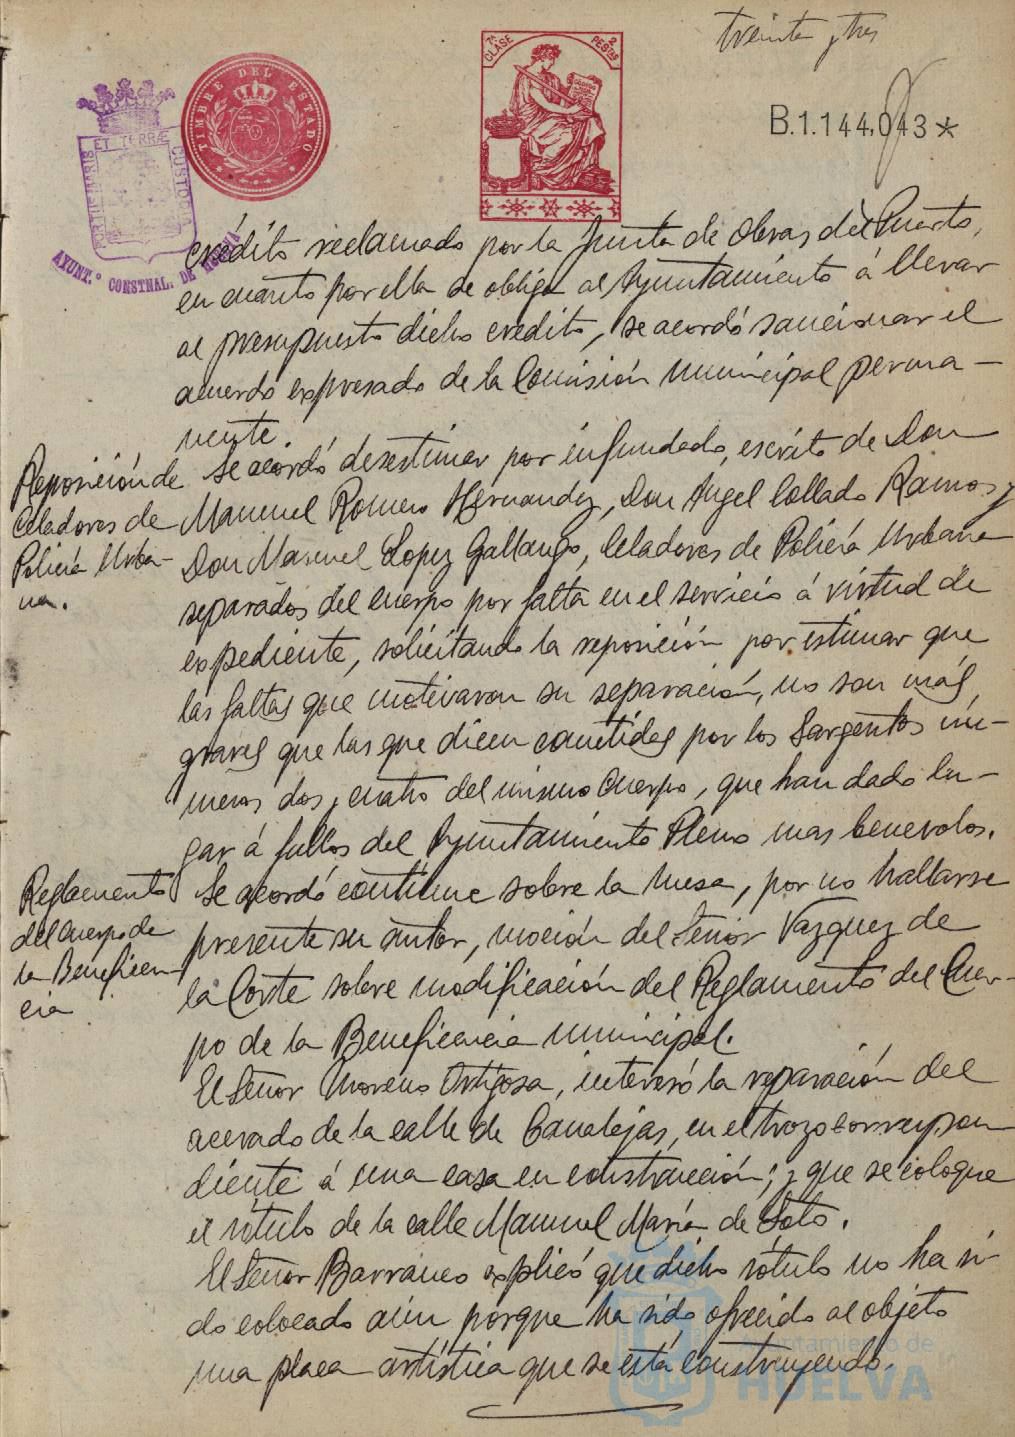 treinta y tres
7ª CLASE 2 PESETAS
TIMBRE DEL ESTADO
PORTUS MARIS ET TERRÆ CUSTODIA
AYUNT.º CONSTNAL. DE HUELVA
B.1.144,043*
crédito reclamado por la Junta de Obras del Puerto,
en cuanto por ella se obliga al Ayuntamiento á llevar
al presupuesto dicho crédito, se acordó sancionar el
acuerdo expresado de la Comisión municipal perma-
nente.
Reposición de
Celadores de
Policía Urba-
na.
Se acordó desestimar por infundado, escrito de Don
Manuel Romero Hernandez, Don Angel Collado Ramos y
Don Manuel Lopez Gallango, Celadores de Policía Urbana
separados del cuerpo por falta en el servicio á virtud de
expediente, solicitando la reposición por estimar que
las faltas que motivaron su separación, no son más
graves que las que dicen cometidas por los Sargentos nú-
meros dos y cuatro del mismo Cuerpo, que han dado lu-
gar á fallos del Ayuntamiento Pleno mas benevolos.
Reglamento
del cuerpo de
la Beneficen-
cia
Se acordó continue sobre la mesa, por no hallarse
presente su autor, moción del Señor Vazquez de
la Corte sobre modificación del Reglamento del Cuer-
po de la Beneficencia municipal.
El Señor Moreno Ortigosa, interesó la reparación del
acerado de la calle de Canalejas, en el trozo correspon
diente á una casa en construcción; y que se coloque
el rótulo de la calle Manuel María de Soto.
El Señor Barranco explicó que dicho rótulo no ha si-
do colocado aún porque ha sido ofrecido al objeto
una placa artística que se está construyendo.
Ayuntamiento de
HUELVA